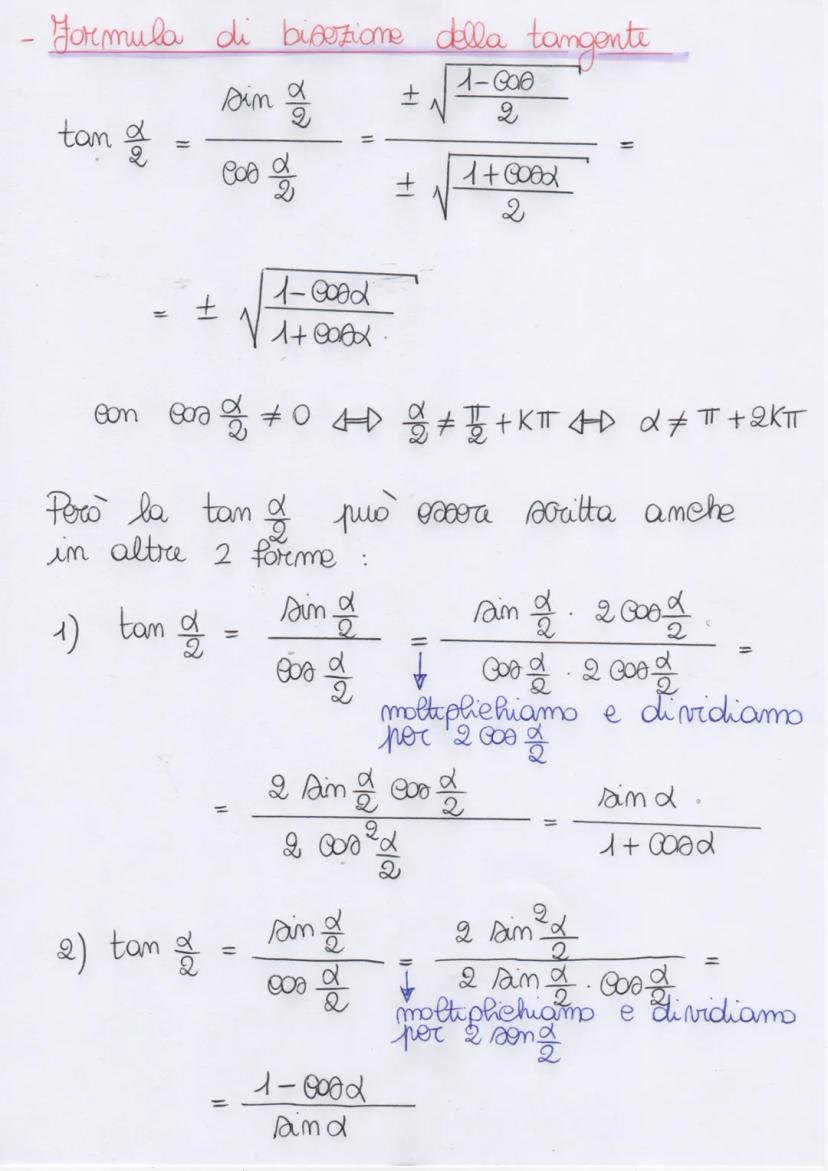 - Formula di bisezione della tangente
tan α/2 = (sin α/2)/(cos α/2) = (± √((1-cos)/2))/(± √((1+cosα)/2)) =
= ± √((1-cosα)/(1+cosα))
con cos α/2 ≠ 0 ⇔ α/2 ≠ π/2 + Kπ ⇔ α ≠ π + 2Kπ
Però la tan α/2 può essere scritta anche
in altre 2 forme :
1) tan α/2 = (sin α/2)/(cos α/2) = (sin α/2 · 2 cos α/2)/(cos α/2 · 2 cos α/2) =
↓
moltiplichiamo e dividiamo
per 2 cos α/2
= (2 sin α/2 cos α/2)/(2 cos² α/2) = (sin α)/(1 + cosα)
2) tan α/2 = (sin α/2)/(cos α/2) = (2 sin² α/2)/(2 sin α/2 · cos α/2) =
↓
moltiplichiamo e dividiamo
per 2 sen α/2
= (1 - cosα)/(sin α)